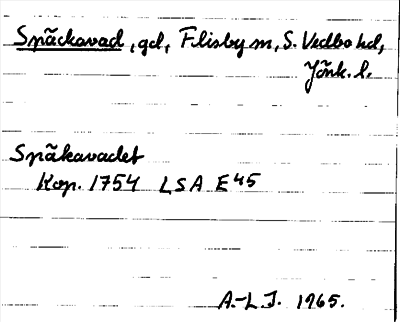 Späckavad, gd, Flisby sn, S. Vedbo hd,
Jönk. l.
Späkavadet
Kop. 1754 LSA E45
A.-L J. 1965.